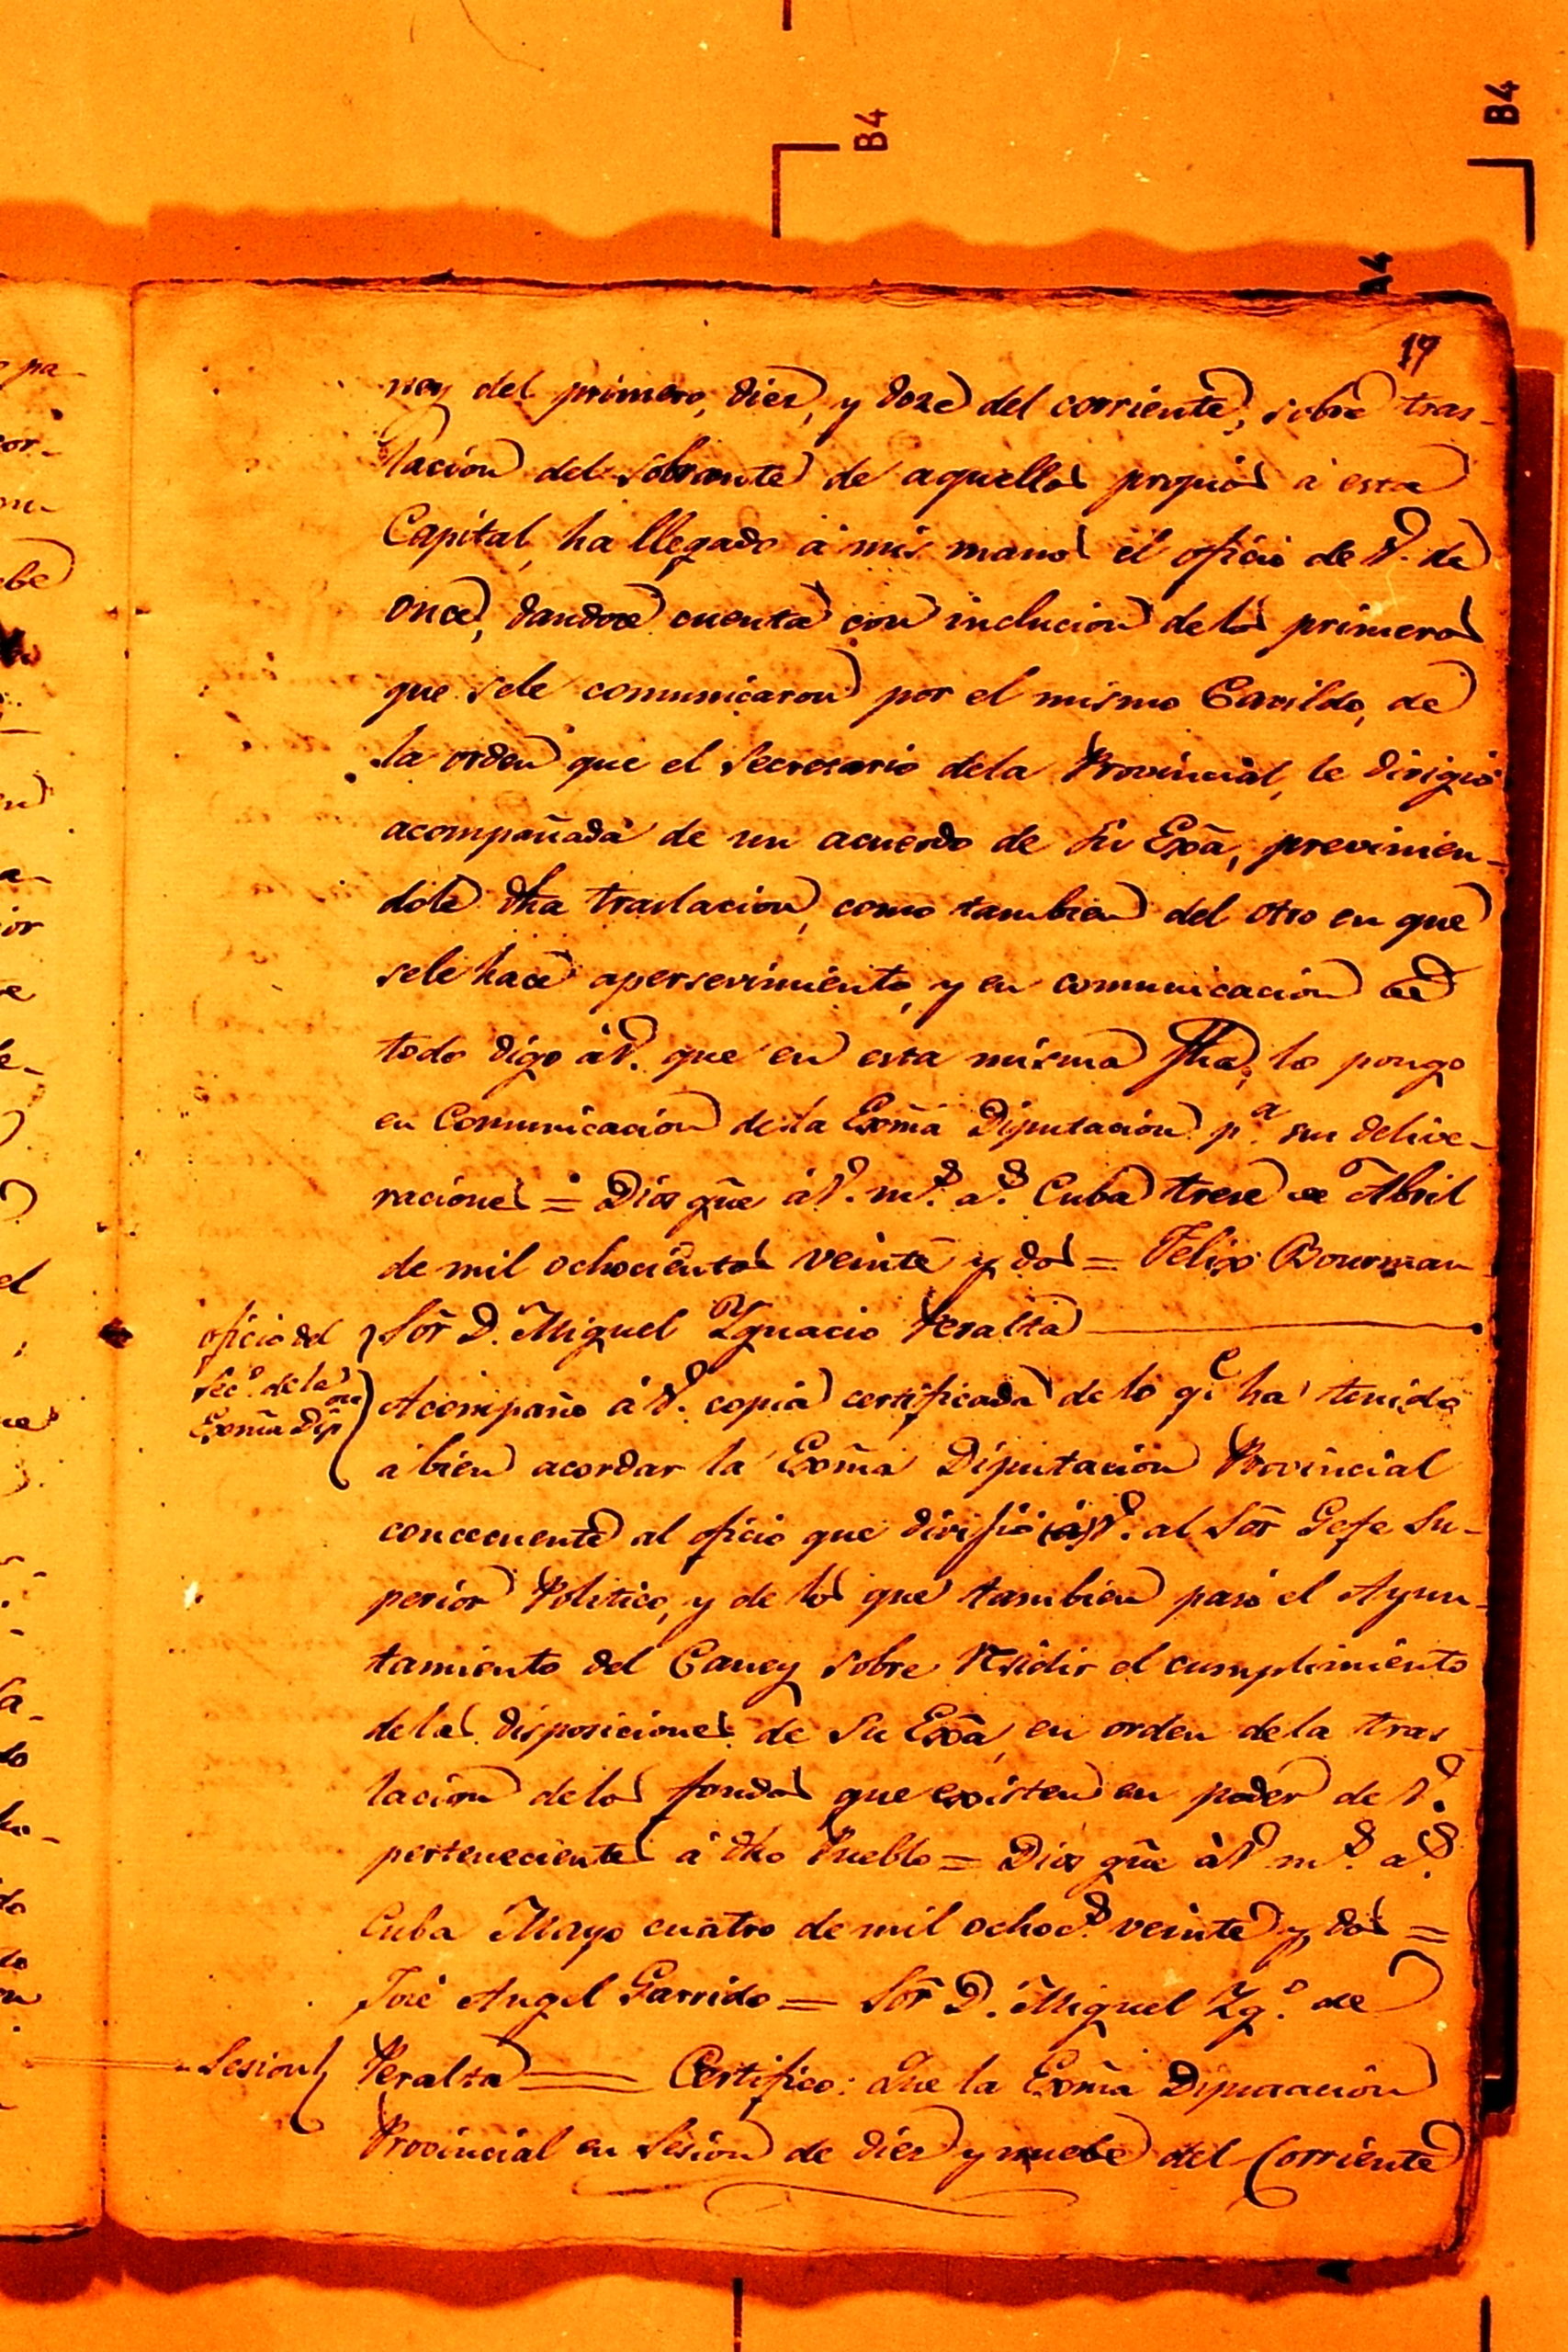 B4
B4
A4
17
ney del primero, diez, y doze del corriente, sobre tras-
lacion del sobrante de aquellos propios á esta
Capital, ha llegado á mis manos el oficio de V. de
once, dandoce cuenta con inclucion de los primeros
que sele comunicaron por el mismo Cavildo, de
la orden que el Secretario dela Provincial, le dirigió
acompañada de un acuerdo de Su Exã, previnien-
dole dha traslacion, como tambien del otro en que
sele hace apersevimiento, y en comunicacion de
todo digo á V. que en esta misma fha, lo pongo
en Comunicacion de la Exmã Diputacion p.ª sus delive-
raciones = Dios gũe á V. m.s a.s Cuba trese de Abril
de mil ochocientos veinte y dos = Felix Bourman
oficio del
Sec.º de la
Exmã Dip.on
Sõr D. Miguel Ygnacio Peralta
Acompaño á V. copia certificada de lo q.e ha tenido
á bien acordar la Exmã Diputacion Provincial
concecuente al oficio que dirijió (á) V. al Sõr Gefe Su-
perior Politico, y de los que tambien pasó el Ayun-
tamiento del Caney sobre residir el cumplimiento
de las disposiciones de Su Exã, en orden de la tras
lacion de los fondos que existen en poder de V.
pertenecientes á dho Pueblo = Dios gũe á V. m.s a.s
Cuba Mayo cuatro de mil ochoc.s veinte y dos =
José Angel Garrido = Sõr D. Miguel Yg.º de
Sesion
Peralta = Certifico: Que la Exmã Diputacion
Provincial en Sesion de diez y nuebe del Corriente